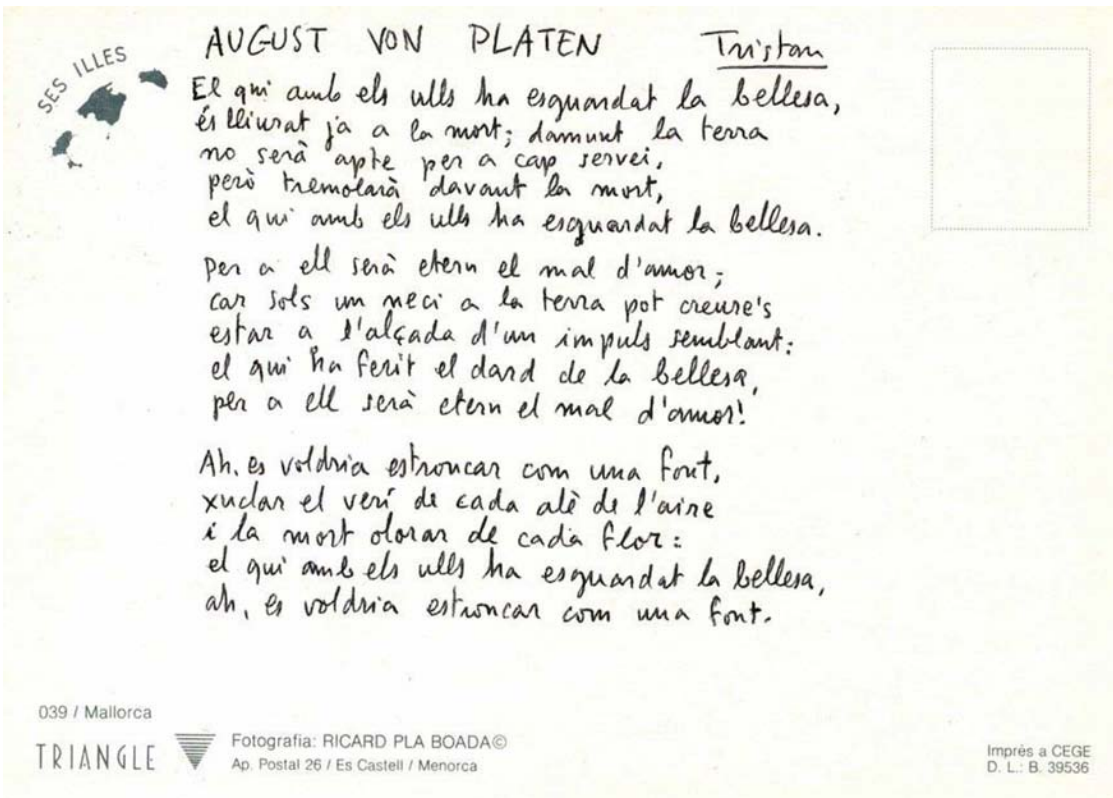 SES ILLES
AUGUST VON PLATEN Tristan
El qui amb els ulls ha esguardat la bellesa,
és lliurat ja a la mort; damunt la terra
no serà apte per a cap servei,
però tremolarà davant la mort,
el qui amb els ulls ha esguardat la bellesa.
Per a ell serà etern el mal d'amor;
car sols un neci a la terra pot creure's
estar a l'alçada d'un impuls semblant:
el qui ha ferit el dard de la bellesa,
per a ell serà etern el mal d'amor!
Ah, es voldria estroncar com una font,
xuclar el verí de cada alè de l'aire
i la mort olorar de cada flor:
el qui amb els ulls ha esguardat la bellesa,
ah, es voldria estroncar com una font.
039 / Mallorca
TRIANGLE
Fotografia: RICARD PLA BOADA©
Ap. Postal 26 / Es Castell / Menorca
Imprés a CEGE
D. L.: B. 39536